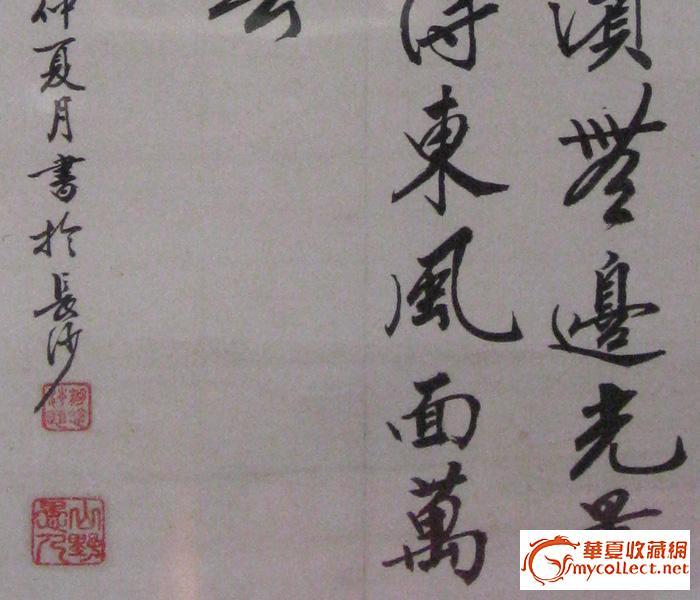 濱無邊光景
得東風面萬
仲夏月書於長沙
山野愚人
華夏收藏網
mycollect.net